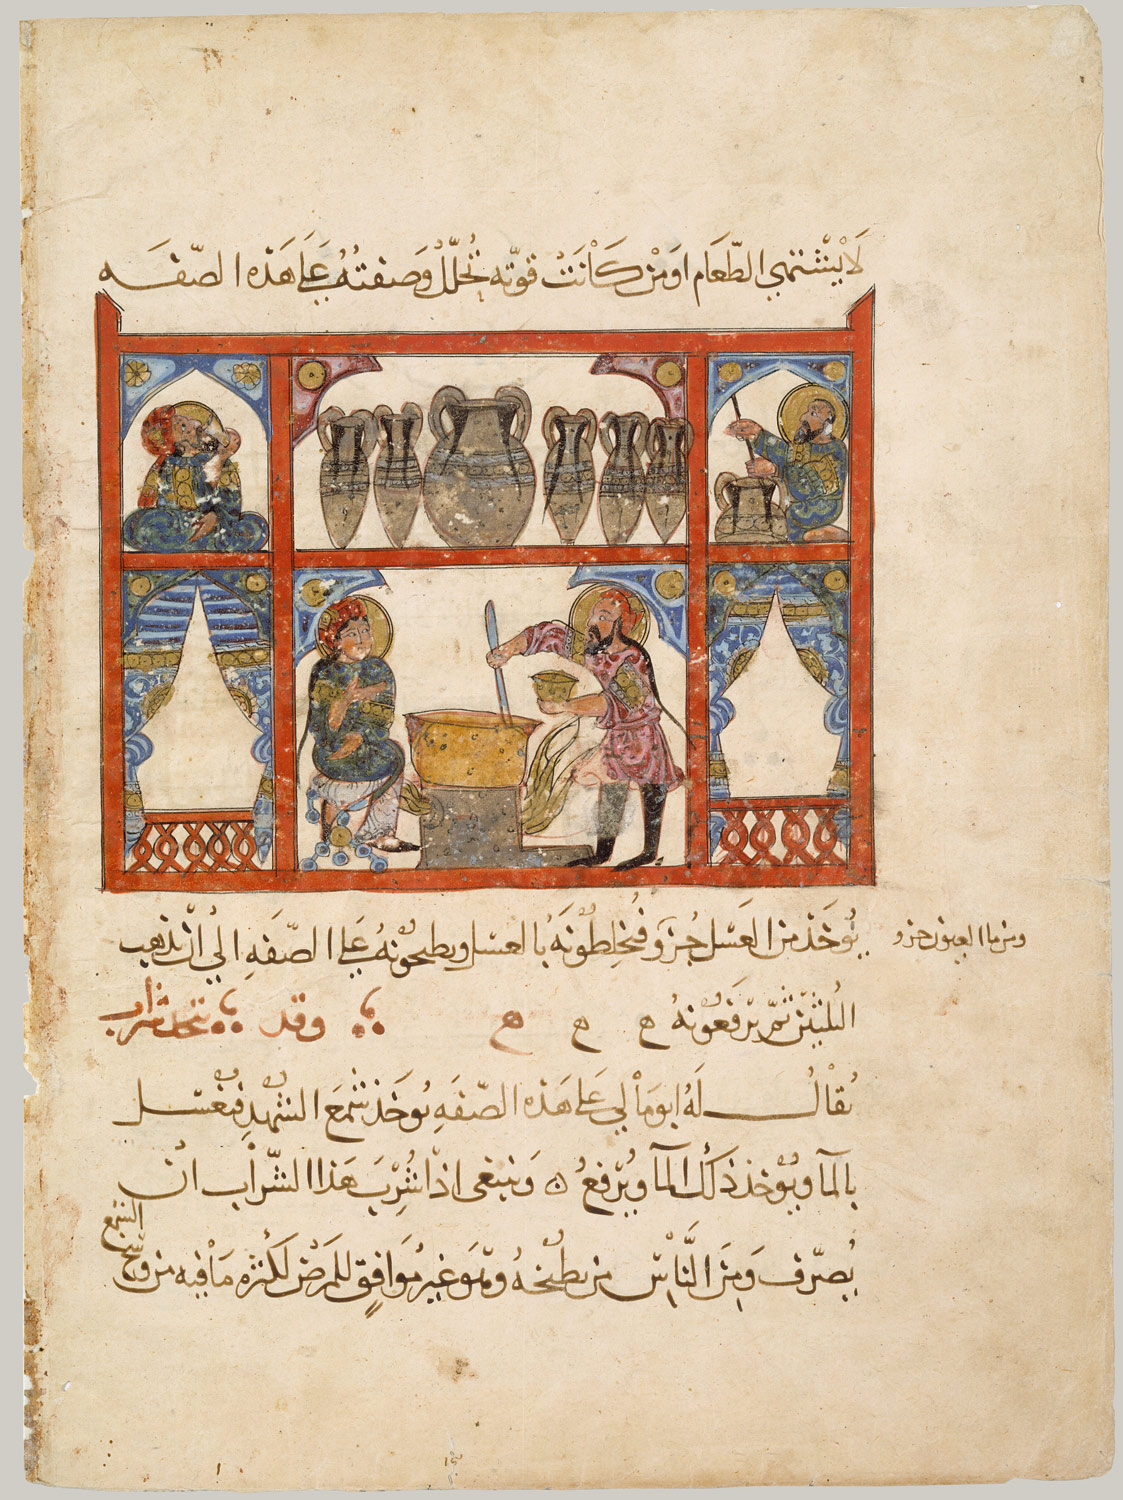 لَا يَشْتَهِي الطَّعَام اوْمَنْ كَانَتْ قوّته تُحَلَّلُ وَصفتُهُ عَلَى هَذه الصّفَه
يُوخَذ مِنَ العَسَل جُزوَ فَيُخلِطُونَهُ بالعسل ويطبخونهُ عَلَى الصّفَهِ الي انْ يَذهب
ومن ما العيون جزو
الثلثين ثمّ يَرْفَعُونهُ ه ه ه وقد يتخذ شراب
يُقالُ لهُ ابومَالي عَلى هَذه الصّفَهِ يُوخَذ شمعَ الشهدِ فيغسل
بالمآ ويُوخذ ذلك المآ ويُرفعُ ه وَينبغى اذا شُرِبَ هَذا الشّراب انْ
يُصرّف وَمِنَ النَّاسْ من يطبخهُ وهُوَ غيرُ مُوَافِق للمرَضْ لكثره مَا فيه من وسخ
الشمع